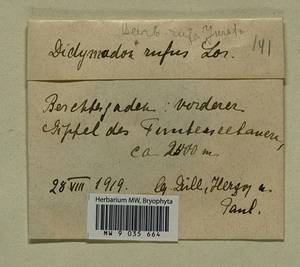 Barb. rufa Juratz.
141
Didymodon rufus Lor.
Berchtesgaden: vorderer
Gipfel des Funtenseetauern,
ca 2500 m
28 VIII 1919. lg. Dill, Herzog u.
Paul.
Herbarium MW, Bryophyta
MW 9 035 664